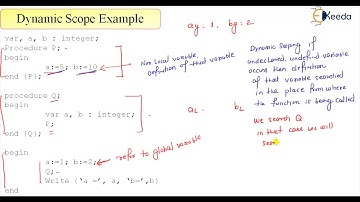 Dynamic Scope Example
Keeda
var, a, b : integer;
Procedure P;
begin
a:=5; b:=10
end {P};
procedure Q;
begin
var a, b : integer;
P;
end {Q};
begin
a:=1; b:=2;
Q;
Write ('a =', a, 'b=',b)
end
Non Local variable,
Definition of that variable
refer to global variable
ag = 1, bg = 2
aL bL
Dynamic Scoping if
undeclared, undefined variable
occurs then definition
of that variable searched
in the place from where
the function is being called
we search Q
in that case we will